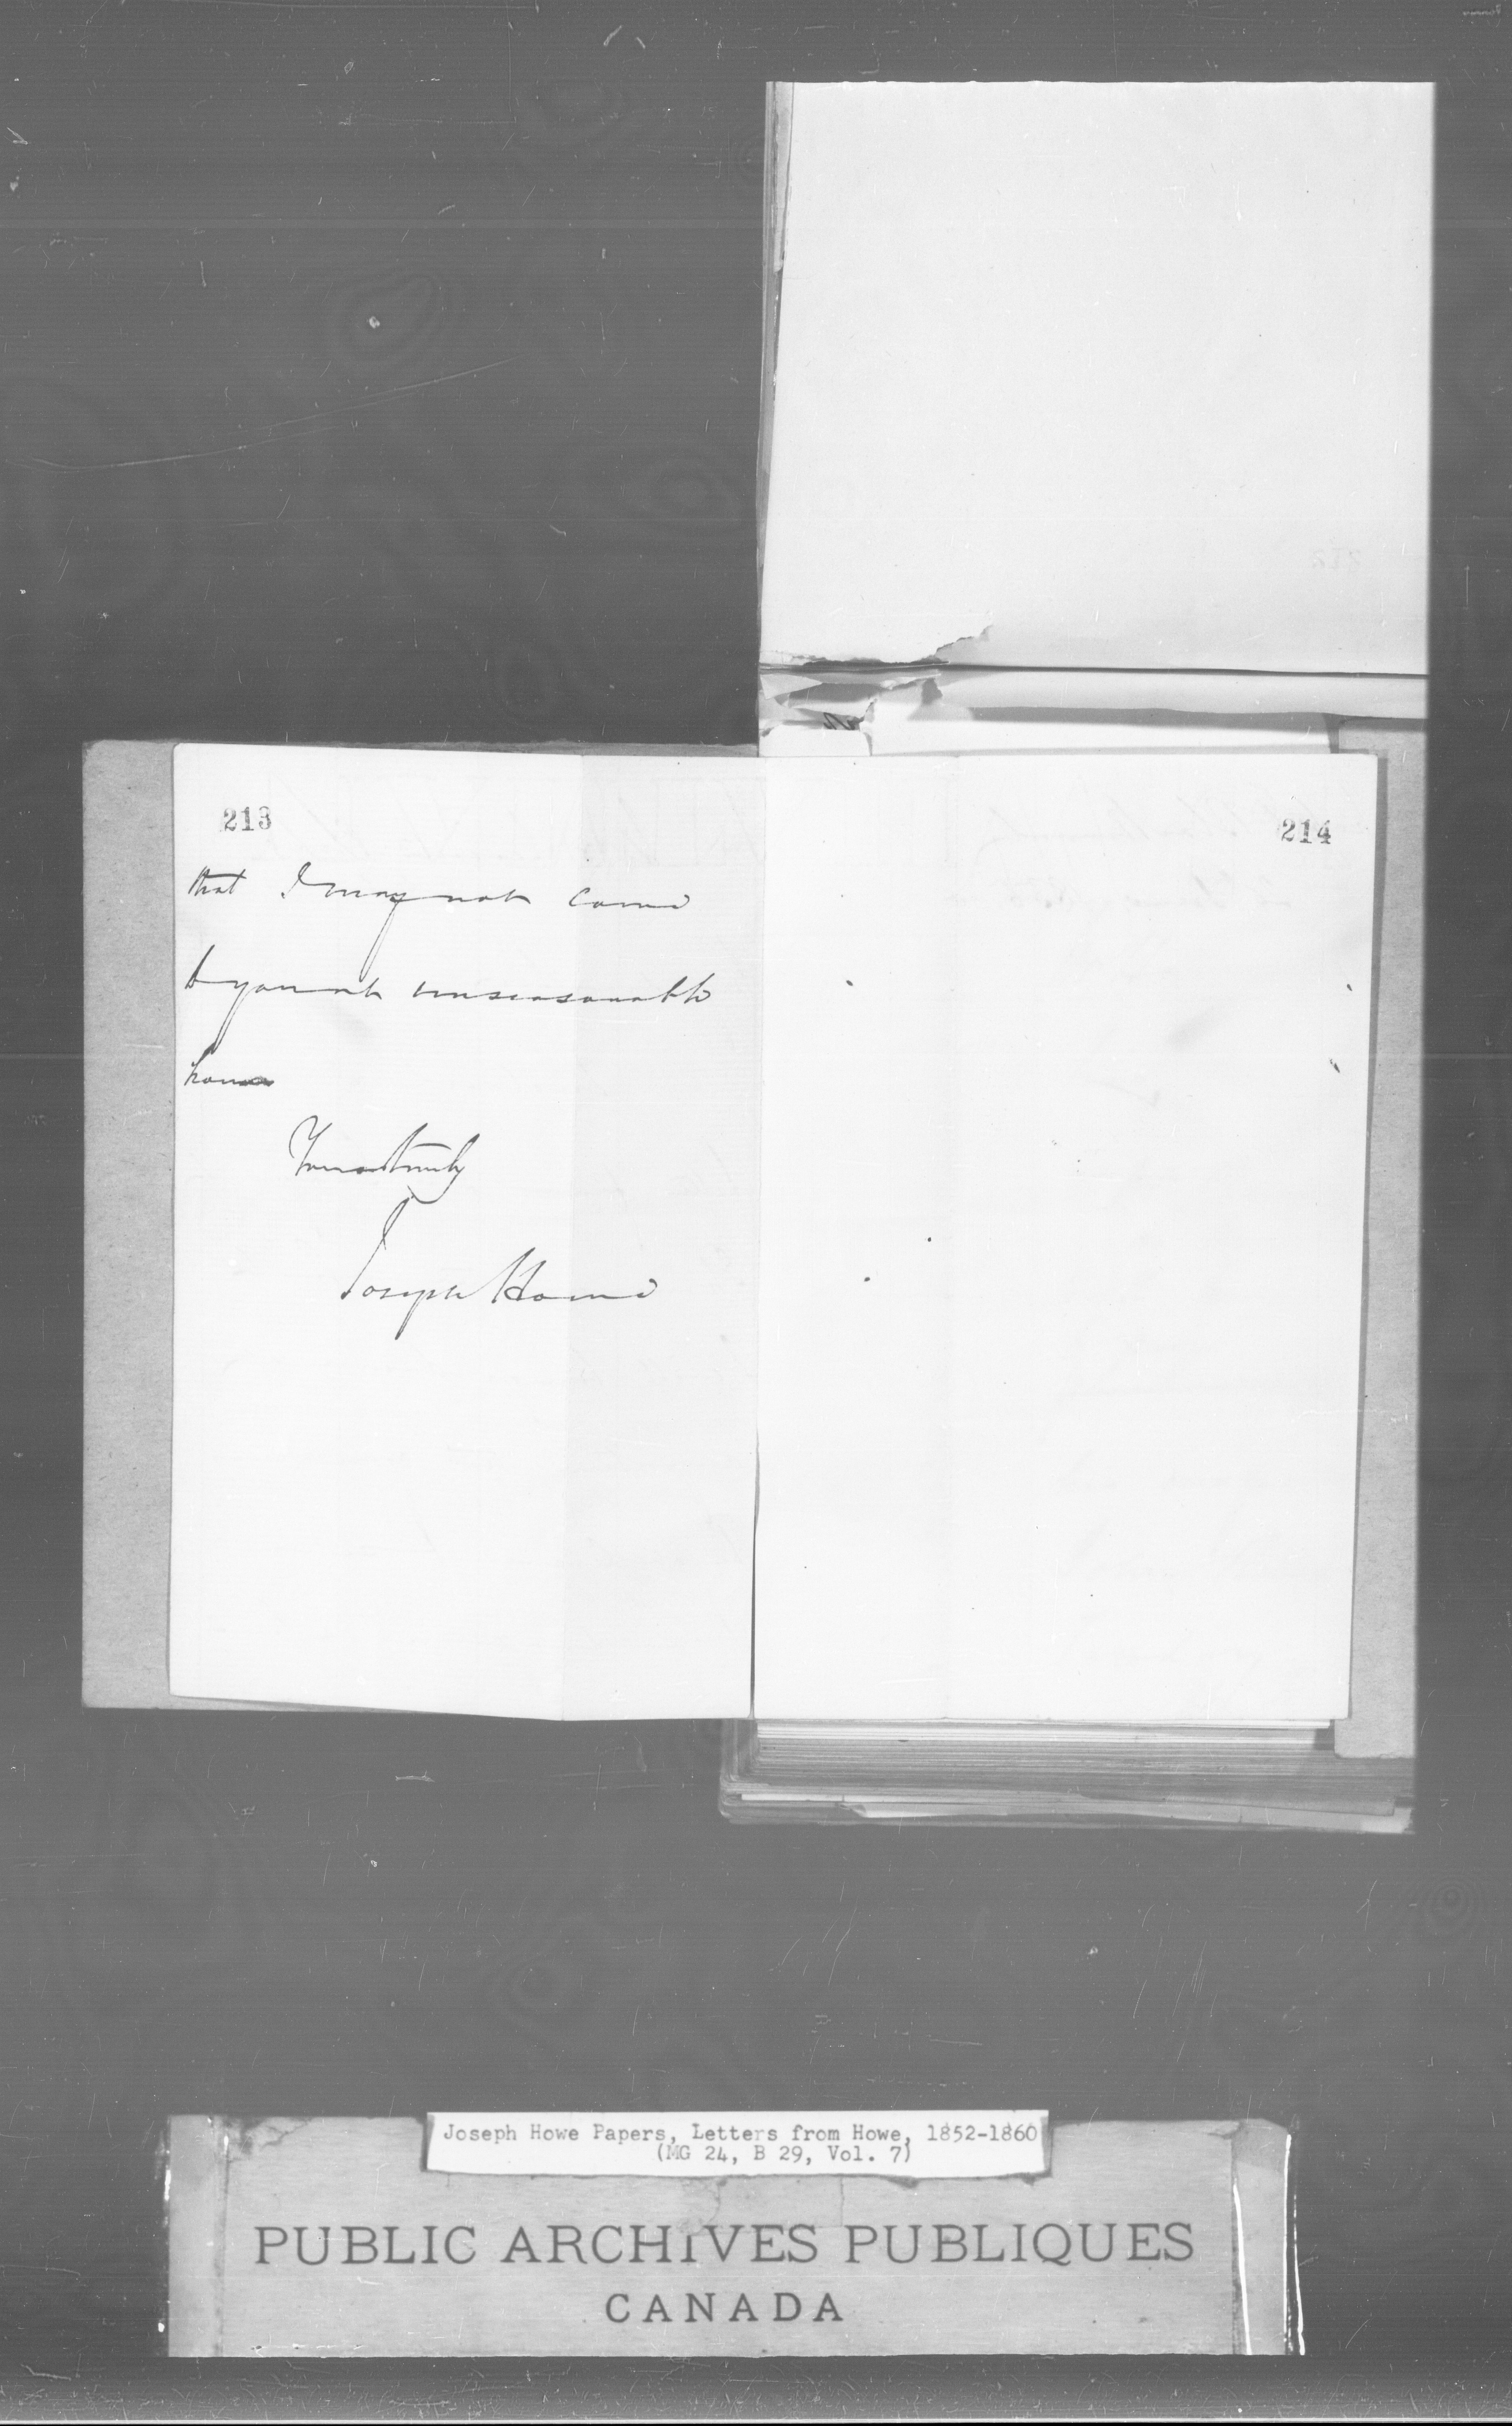 213
that I may not come
to you at unseasonable
hours
Yours truly
Joseph Howe
214
Joseph Howe Papers, Letters from Howe, 1852-1860
(MG 24, B 29, Vol. 7)
PUBLIC ARCHIVES PUBLIQUES
CANADA